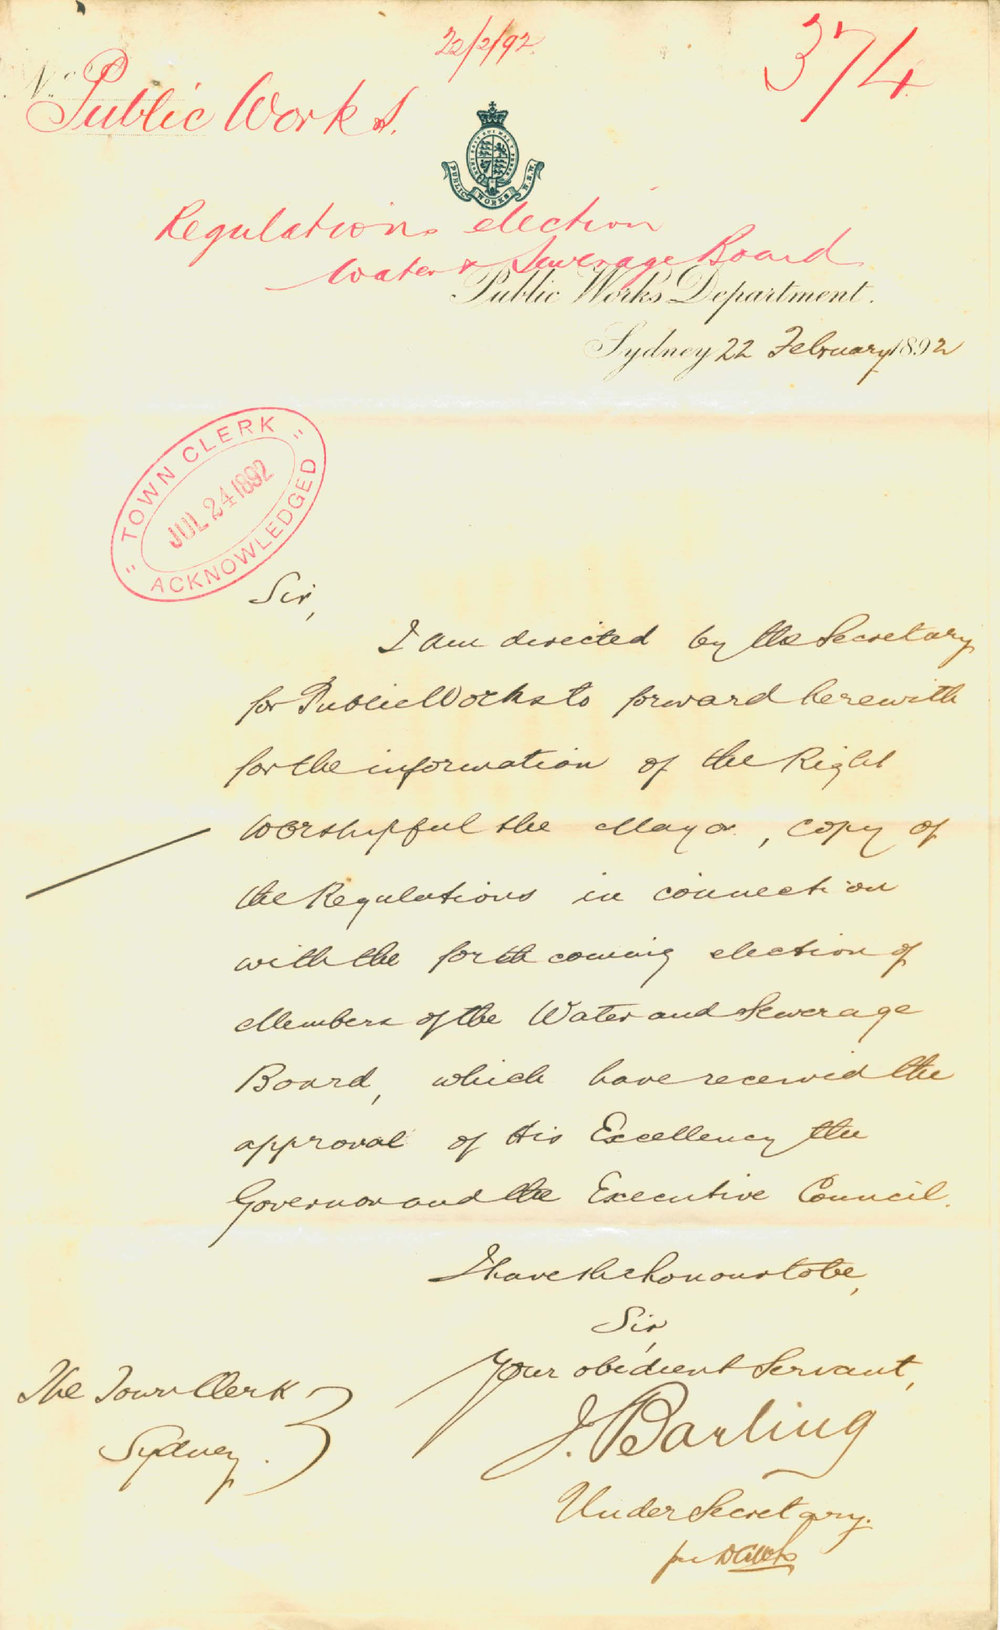 22/2/92
374
No
Public Works.
PUBLIC WORKS N.S.W.
Regulations election
Water & Sewerage Board
Public Works Department.
Sydney 22 February 1892
"TOWN CLERK"
JUL 24 1892
ACKNOWLEDGED
Sir,
I am directed by the Secretary
for Public Works to forward herewith
for the information of the Right
Worshipful the Mayor, copy of
the Regulations in connection
with the forthcoming election of
Members of the Water and Sewerage
Board, which have received the
approval of His Excellency the
Governor and the Executive Council.
I have the honour to be,
Sir,
Your obedient Servant,
J. Barling
Under Secretary.
The Town Clerk
Sydney.